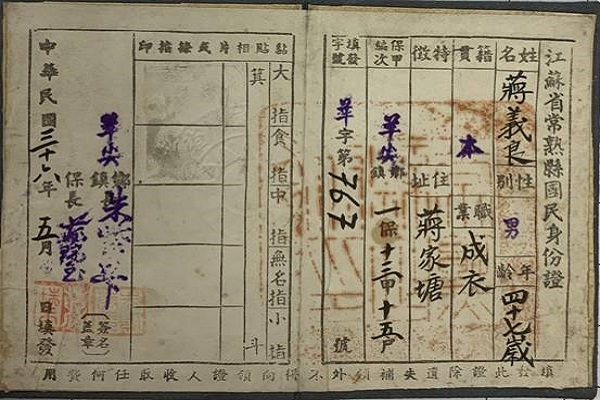 江蘇省常熟縣國民身份證
姓名 蔣義良 性別 男 年齡 四十七歲
籍貫 本 職業 成衣
特徵 住址 蔣家塘
保甲編次 羊尖鄉鎮 一保十三甲十五戶
填發字號 羊字第767號
黏貼相片或捺指印
箕 斗
大指 食指 中指 無名指 小指
羊尖鄉鎮長 朱
保長
(簽名蓋章)
中華民國三十八年五月 日填發
填發此證除遺失補領外不得向領證人收取任何費用